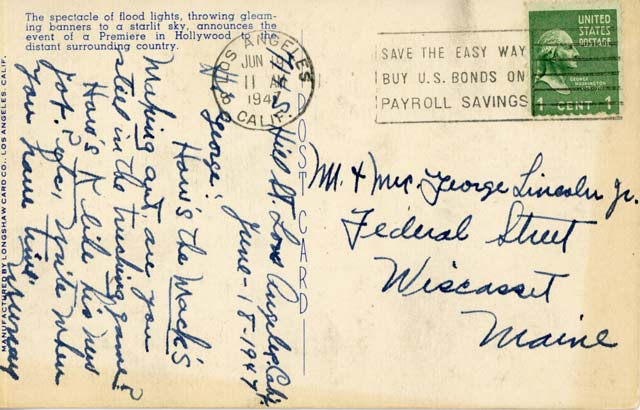 The spectacle of flood lights, throwing gleam-
ing banners to a starlit sky, announces the
event of a Premiere in Hollywood to the
distant surrounding country.
LOS ANGELES
JUN 19
11 AM
1947
CALIF.
SAVE THE EASY WAY
BUY U.S. BONDS ON
PAYROLL SAVINGS
UNITED
STATES
POSTAGE
GEORGE WASHINGTON
1 CENT 1
POST CARD
MANUFACTURED BY LONGSHAW CARD CO., LOS ANGELES, CALIF.
S. Hill St. Los Angeles, Cali.
June-18-1947.
Hi George!
How's the Mack's
Making out, are you
still in the trucking game?
How's A like his new
job. Write when
you have time
Mr. & Mrs. George Lincoln Jr.
Federal Street
Wiscasset
Maine